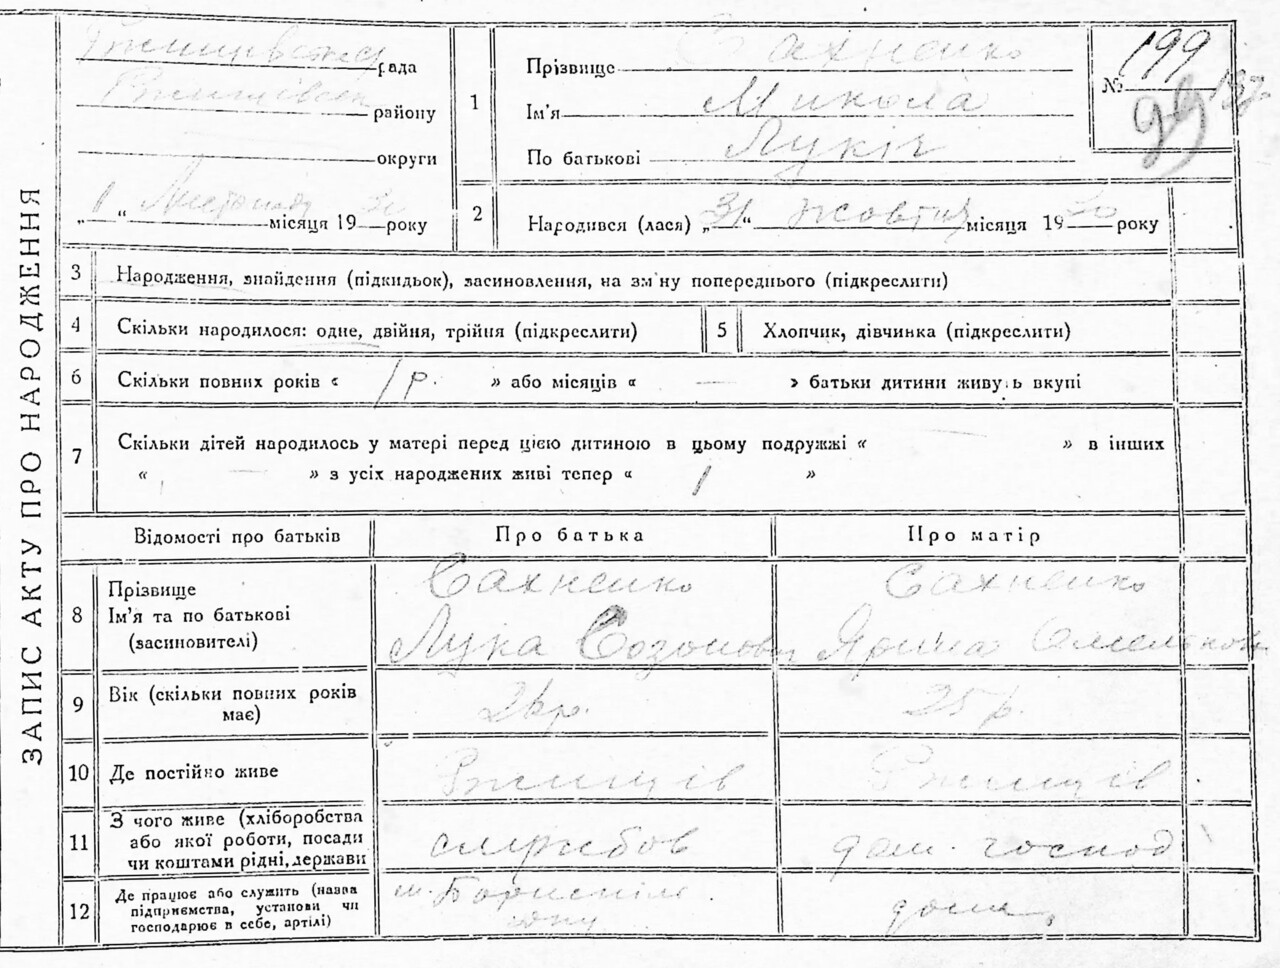 ЗАПИС АКТУ ПРО НАРОДЖЕННЯ
Ржищівська рада
Ржищівськ району
округи
„1“ Листопад місяця 1930 року
1
Прізвище Сахненко
Ім'я Микола
По батькові Лукіч
№ 199
99
2
Народився (лася) „31“ жовтня місяця 1930 року
3 Народження, знайдення (підкидьок), засиновлення, на зм'ну попереднього (підкреслити)
4 Скільки народилося: одне, двійня, трійня (підкреслити) 5 Хлопчик, дівчинка (підкреслити)
6 Скільки повних років « 1 р. » або місяців « — » батьки дитини живуть вкупі
7 Скільки дітей народилось у матері перед цією дитиною в цьому подружжі « » в інших
« — » з усіх народжених живі тепер « 1 »
Відомості про батьків Про батька Про матір
8 Прізвище Сахненко Сахненко
Ім'я та по батькові
(засиновителі) Лука Созонович Ярина
9 Вік (скільки повних років
має) р. 25 р.
10 Де постійно живе Ржищів Ржищів
11 З чого живе (хліборобства
або якої роботи, посади
чи коштами рідні, держави службов дом. господ
12 Де працює або служить (назва
підприємства, установи чи
господарює в себе, артілі) м. Бориспіль дома